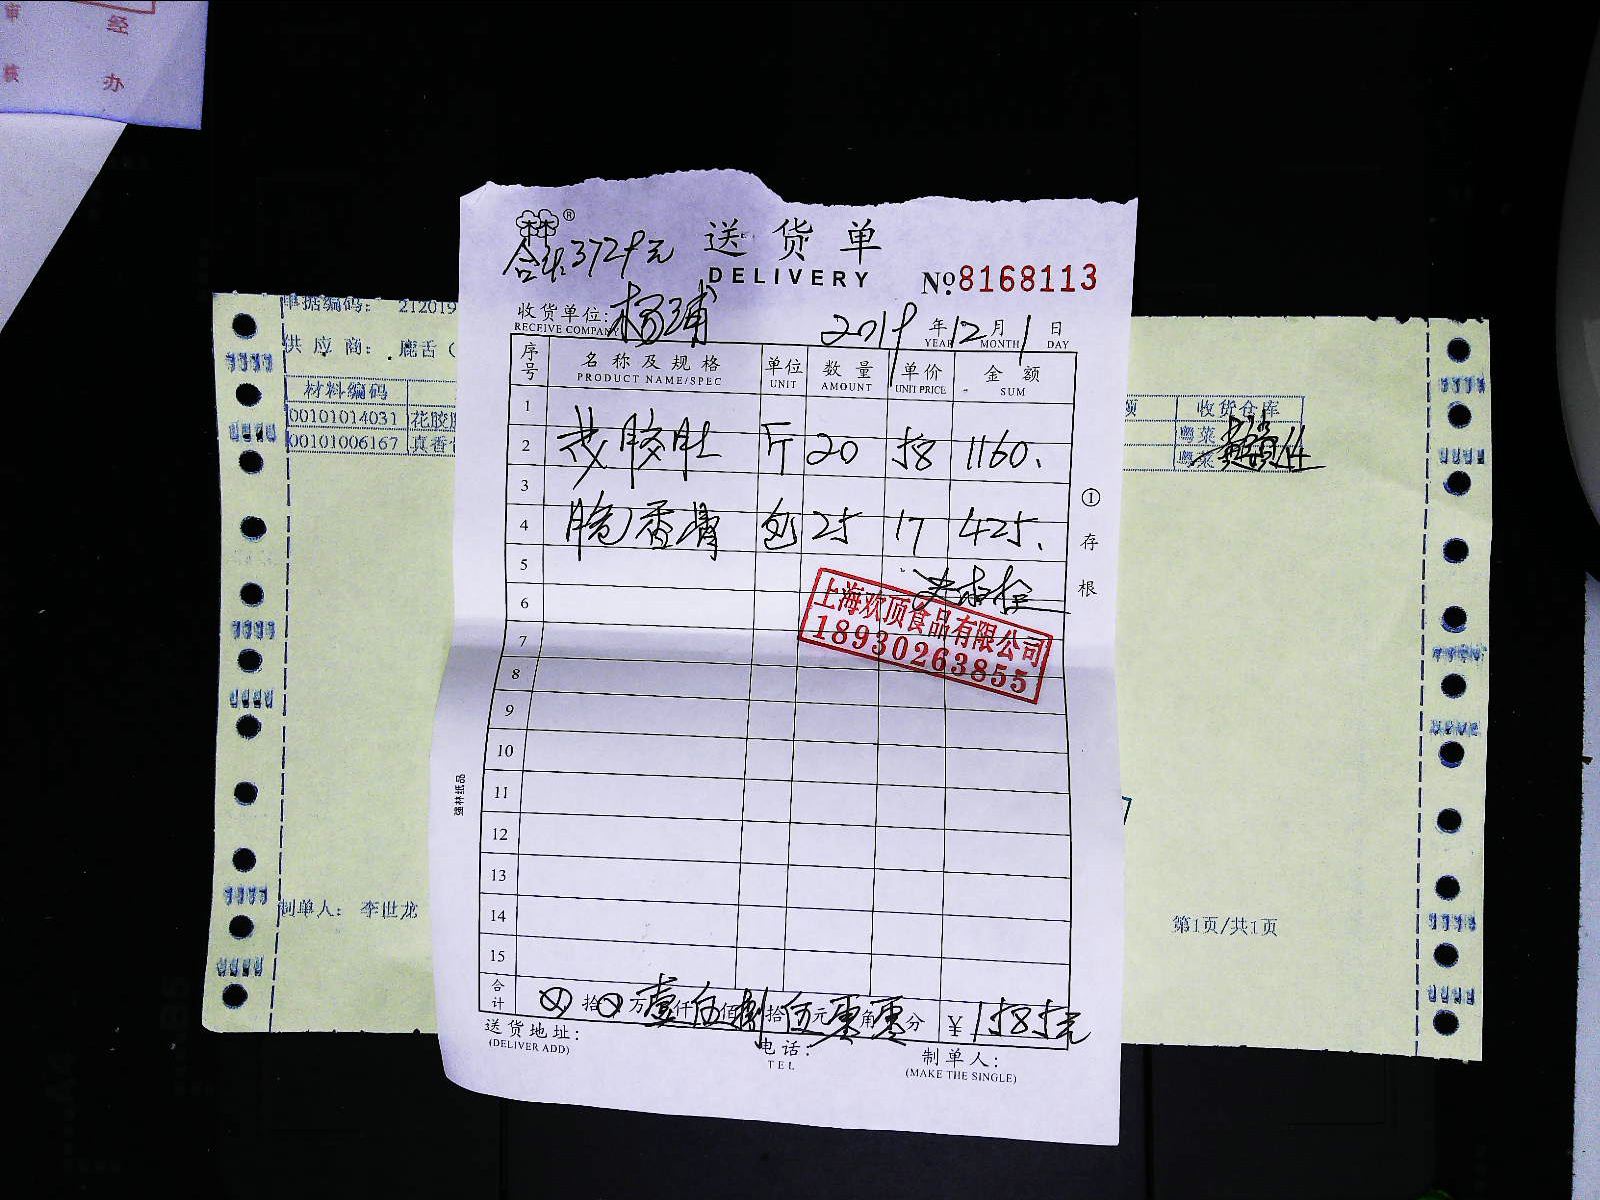 审 经
核 办
®
送货单
合计3729元
DELIVERY
№8168113
收货单位: 杨浦
RECEIVE COMPANY
2019年12月1日
YEAR MONTH DAY
序号 名称及规格 单位 数量 单价 金额
PRODUCT NAME/SPEC UNIT AMOUNT UNIT PRICE SUM
1
2 花胶肚 斤 20 58 1160.
3
4 脆香骨 包 25 17 425.
5
6
7
8
9
10
11
12
13
14
15
上海欢顶食品有限公司
18930263855
①存根
强林纸品
合计 ⊗拾⊗万壹仟伍佰捌拾伍元零角零分 ¥1585元
送货地址:
(DELIVER ADD)
电话:
TEL
制单人:
(MAKE THE SINGLE)
单据编码: 212019
供应商: 鹿舌(
材料编码
00101014031 花胶
00101006167 真香
额 收货仓库
鹏莱
鹏莱
制单人: 李世龙
第1页/共1页